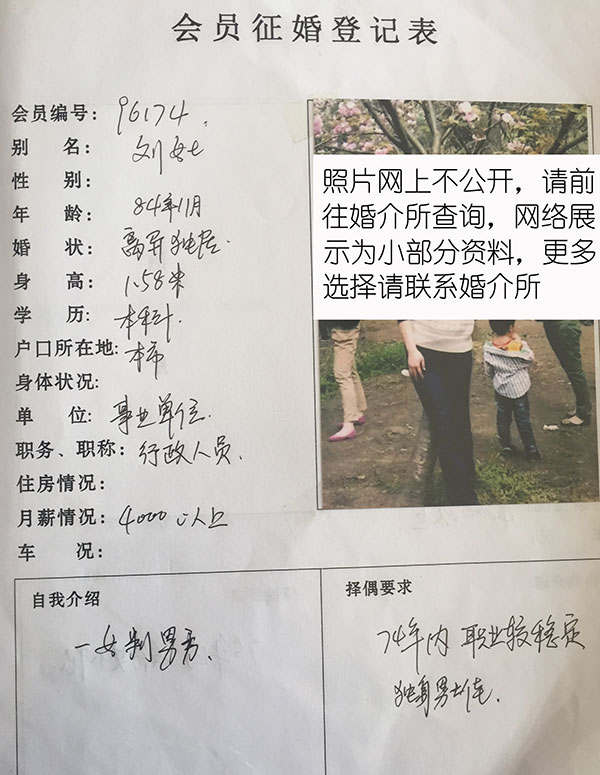 会员征婚登记表
会员编号: 96174
别 名: 刘女士
性 别:
年 龄: 84年11月
婚 状: 离异独居.
身 高: 1.58米
学 历: 本科
户口所在地: 本市
身体状况:
单 位: 事业单位
职务、职称: 行政人员.
住房情况:
月薪情况: 4000以上
车 况:
照片网上不公开，请前
往婚介所查询，网络展
示为小部分资料，更多
选择请联系婚介所
自我介绍
一女判男方.
择偶要求
74年内 职业较稳定
独身男士